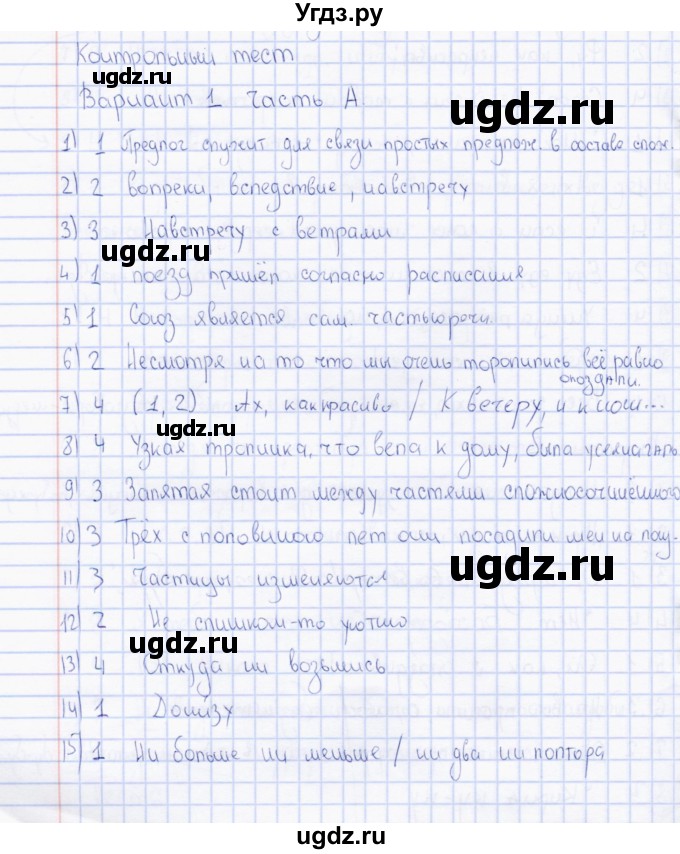 Угдз.ру
Контрольный тест
ugdz.ru
Вариант 1 Часть А.
ugdz.ru
1) 1 Предлог служит для связи простых предлож. в составе слож.
2) 2 вопреки, вследствие, навстречу
3) 3 Навстречу с ветрами
ugdz.ru
4) 1 поезд пришёл согласно расписания
5) 1 Союз является сам. частью речи.
6) 2 Несмотря на то что мы очень торопились всё равно
опоздали.
7) 4 (1,2) Ах, как красиво / К вечеру, и к ноч...
ugdz.ru
8) 4 Узкая тропинка, что вела к дому, была
9) 3 Запятая стоит между частями сложносочинённого
10) 3 Трёх с половиного лет они посадили мен на лош-
ugdz.ru
11) 3 Частицы изменяются
12) 2 Не слишком-то уютно
ugdz.ru
13) 4 Откуда ни возьмись
14) 1 Донизу
15) 1 Ни больше ни меньше / ни два ни полтора
ugdz.ru